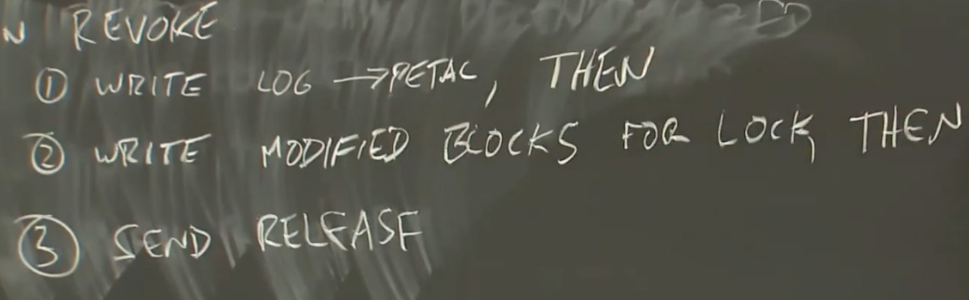 N REVOKE
① WRITE LOG → PETAL, THEN
② WRITE MODIFIED BLOCKS FOR LOCK, THEN
③ SEND RELEASE